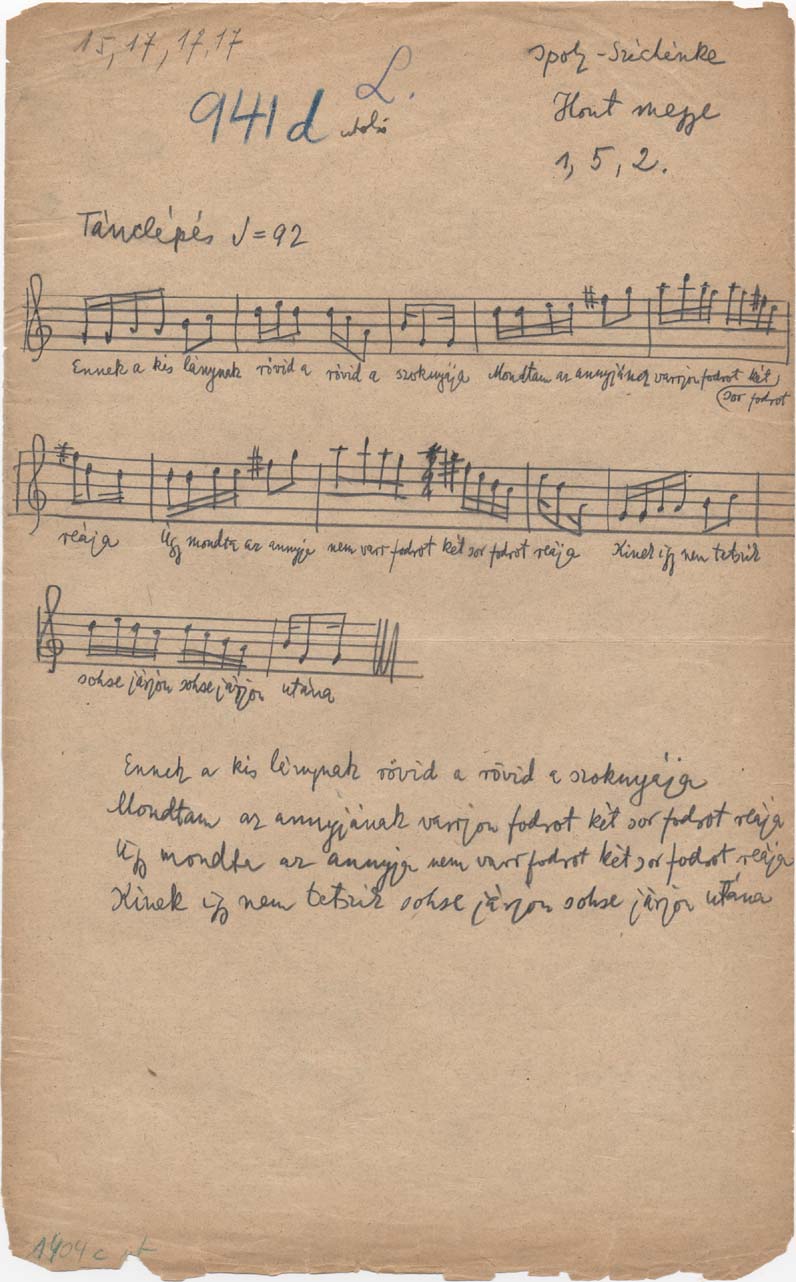 15, 17, 17, 17
941 d L.
utolsó
Ipoly-Szécsénke
Hont megye
1, 5, 2.
Tánclépés ♩=92
Ennek a kis lánynak rövid a rövid a szoknyája Mondtam az annyjának varrjon fodrot két
sor fodrot
reája Úgy mondta az annyja nem varr fodrot két sor fodrot reája Kinek így nem tetszik
sohse járjon sohse járjon utána
Ennek a kis lánynak rövid a rövid a szoknyája
Mondtam az annyjának varrjon fodrot két sor fodrot reája
Úgy mondta az annyja nem varr fodrot két sor fodrot reája
Kinek így nem tetszik sohse járjon sohse járjon utána
1404 c